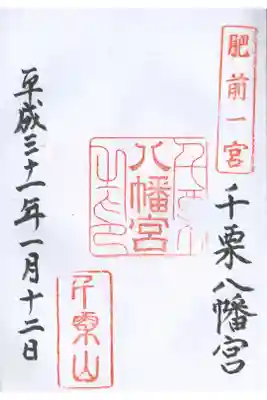 肥前一宮
千栗八幡宮
八幡宮
千栗山
平成三十一年一月十二日